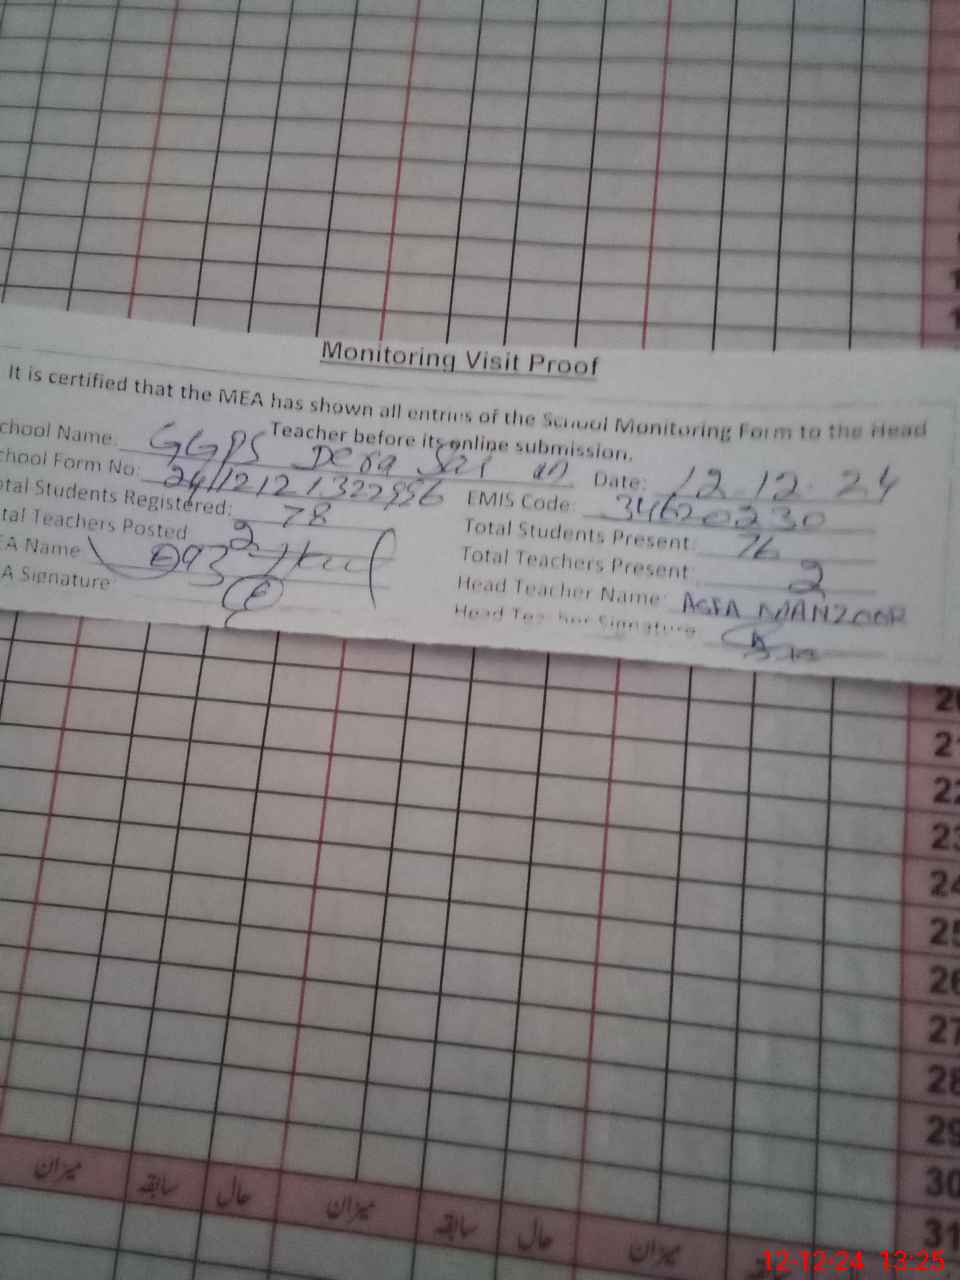 Monitoring Visit Proof
It is certified that the MEA has shown all entries of the School Monitoring Form to the Head
Teacher before its online submission.
chool Name: GGPS Dera Date: 12.12.24
chool Form No: EMIS Code: 34620230
otal Students Registered: 78 Total Students Present: 76
tal Teachers Posted 2 Total Teachers Present: 2
EA Name Head Teacher Name: MANZOOR
A Signature Head Teacher Signature
20
21
22
23
24
25
26
27
28
29
30
31
میزان سابقہ حال میزان سابقہ حال میزان
12-12-24 13:25